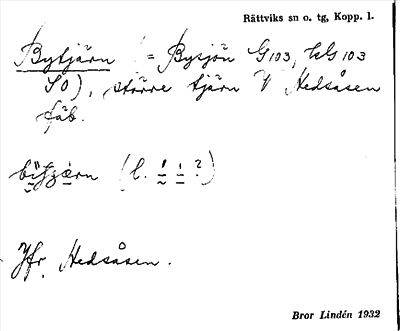 Rättviks sn o. tg, Kopp. l.
Bytjärn (= Bysjön G103, kls 103
SO), större tjärn V Hedsåsen
fäb.
(l.
?)
Jfr Hedsåsen.
Bror Lindén 1932